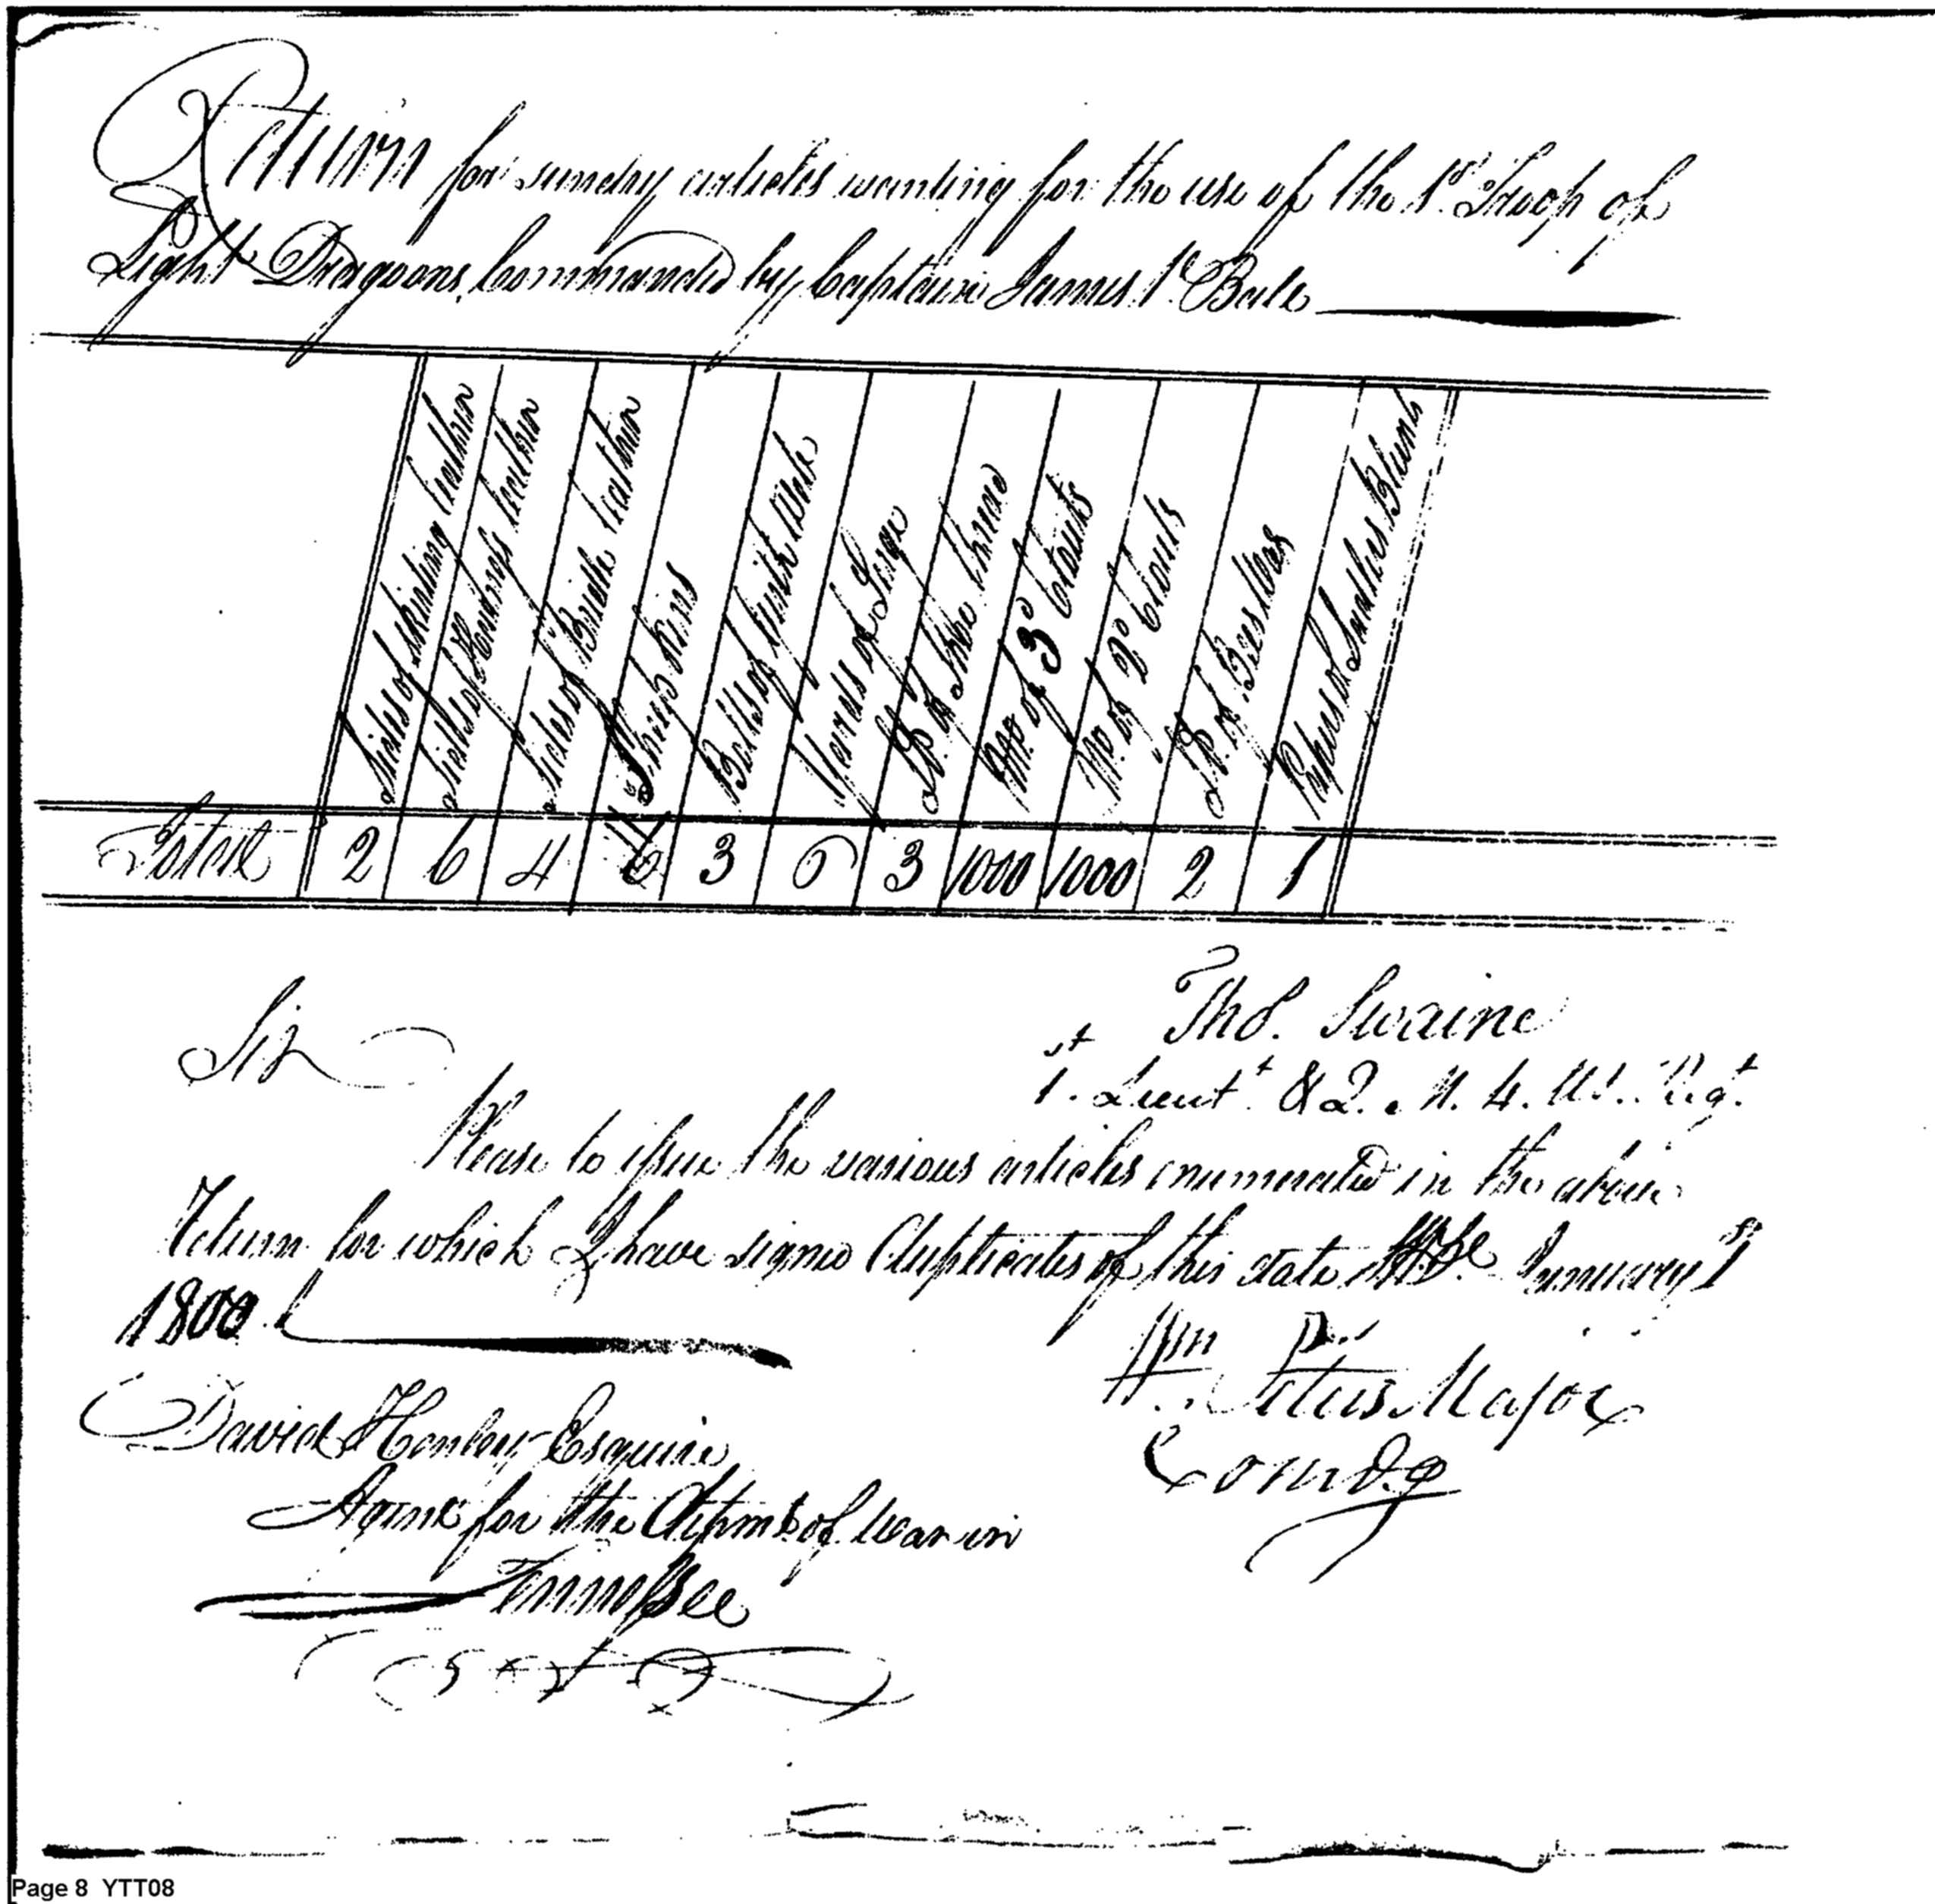 Return for sundry articles wanting for the use of the 1st Troop of
Light Dragoons, Commanded by Captain James V Bale
Sides of skirting Leather
Sides of Harness Leather
Sides of Bridle Leather
Sheep skins
Bolts of Girth Webb
Yards of Serge
lb of Shoe Thread
M. of 3d Clouts
M. of 2d Clouts
lb of Bristles
Papers of Saddlers Blunts
Total 2 6 4 3 6 3 1000 1000 2 1
Thos. Swaine
1st. Lieut. & Q. M. 4. U.S. Regt.
Sir
Please to issue the various articles enumerated in the above
Return for which I have signed Duplicates of this date January 1st
1800
Wm Peters Major
Comdg
David Henley Esquire
Agent for the Depmt of War in
Tennessee
Page 8 YTT08